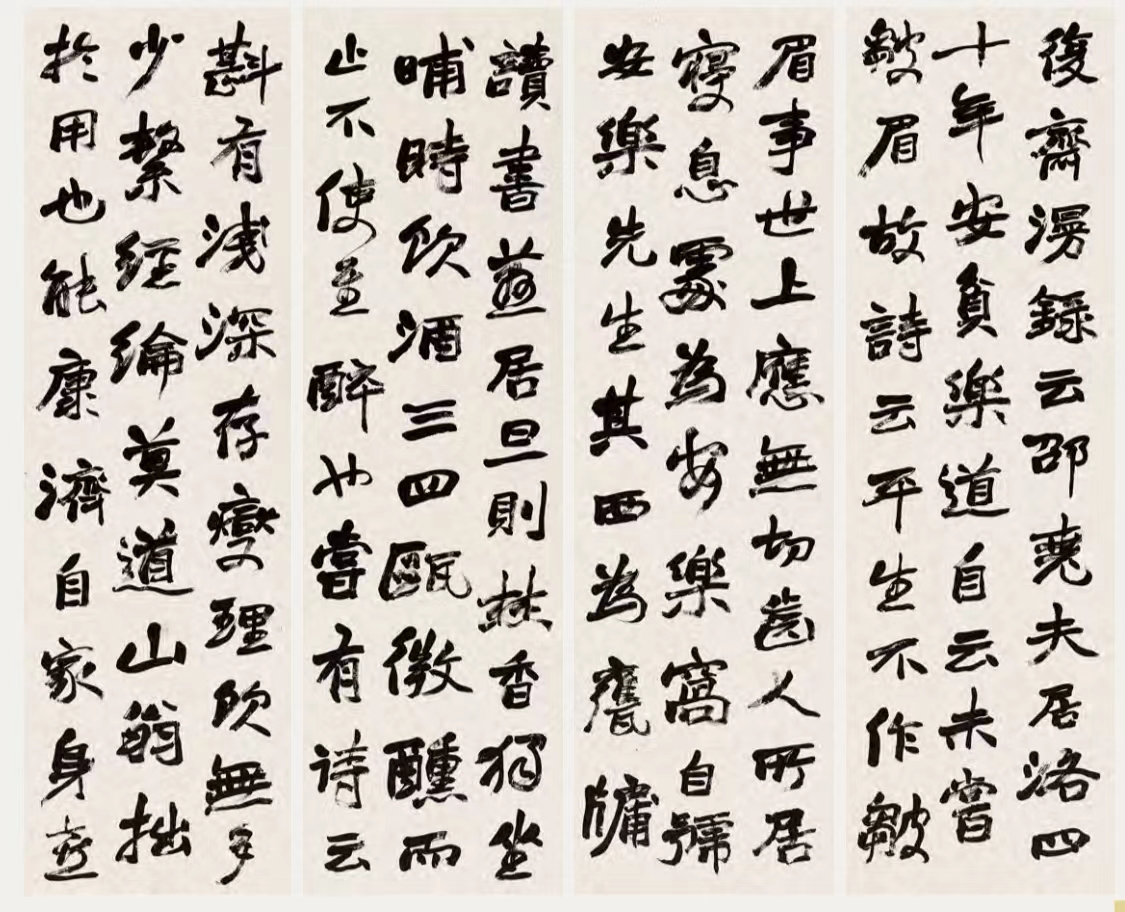 復齋漫錄云邵堯夫居洛四
十年安貧樂道自云未嘗
皺眉故詩云平生不作皺
眉事世上應無切齒人所居
寢息處為安樂窩自號
安樂先生其西為甕牖
讀書燕居旦則焚香獨坐
晡時飲酒三四甌微醺而
止不使至醉也嘗有诗云
斟有淺深存燮理飲無多
少繫經綸莫道山翁拙
於用也能康濟自家身